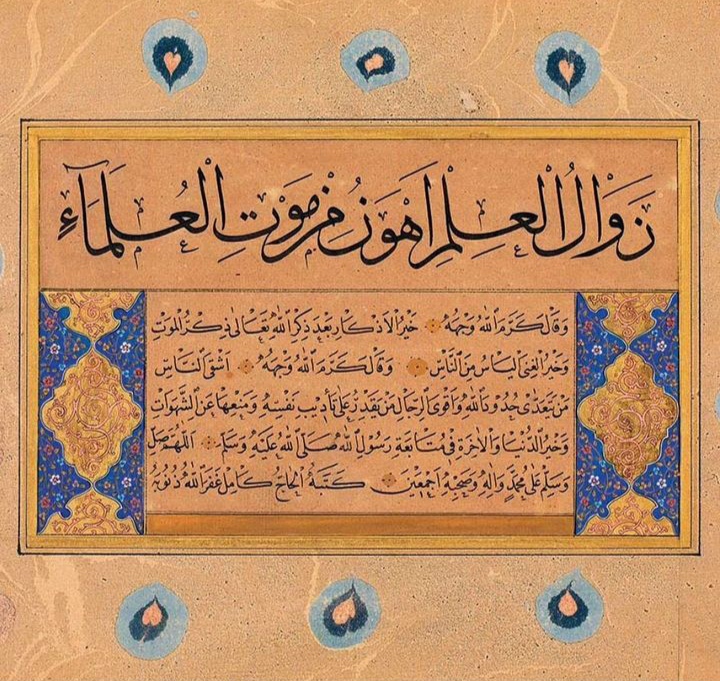 زَوَالُ الْعِلْمِ اَهْوَنُ مِنْ مَوْتِ الْعُلَمَآءِ
وَقَالَ كَرَّمَ اللهُ وَجْهَهُ خَيْرُ الاَذْكَارِ بَعْدَ ذِكْرِ اللهِ تَعَالٰى ذِكْرُ الْمَوْتِ
وَخَيْرُ الْغِنٰى الْيَاسُ مِنَ النَّاسِ وَقَالَ كَرَّمَ اللهُ وَجْهَهُ اَشْقَى النَّاسِ
مَنْ يَتَعَدّٰى حُدُودَ اللهِ وَاَقْوَى الرِّجَالِ مَنْ يَقْدِرُ عَلٰى تَأْدِيبِ نَفْسِهِ وَمَنْعِهَا عَنِ الشَّهَوَاتِ
وَخَيْرُ الدُّنْيَا وَالْاٰخِرَةِ فِي مُتَابَعَةِ رَسُولِ اللهِ صَلَّى اللهُ عَلَيْهِ وَسَلَّمَ اَللّٰهُمَّ صَلِّ
وَسَلِّمْ عَلٰى مُحَمَّدٍ وَاٰلِهِ وَصَحْبِهِ اَجْمَعِينَ كَتَبَهُ الْحَاجُّ كَامِل غَفَرَ اللهُ ذُنُوبَهُ